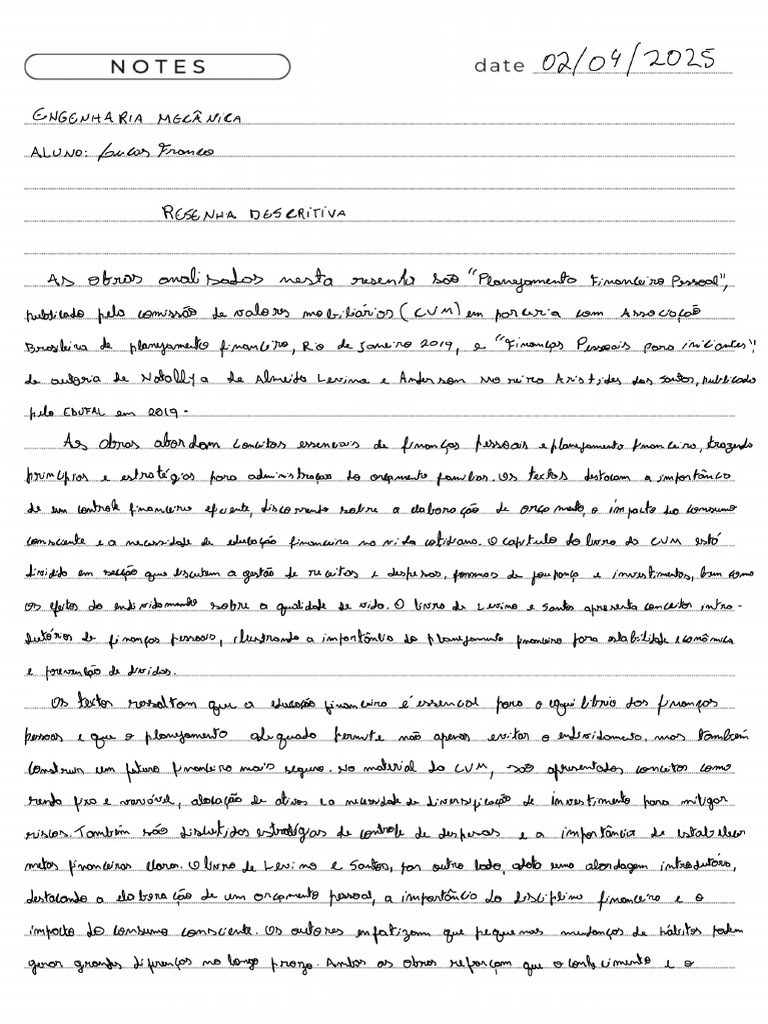 NOTES
date 02/04/2025
ENGENHARIA MECÂNICA
ALUNO: Lucas Franco
RESENHA DESCRITIVA
As obras analisadas nesta resenha são "Planejamento Financeiro Pessoal",
publicado pela comissão de valores mobiliários (CVM) em parceria com Associação
Brasileira de planejamento financeiro, Rio de Janeiro 2019, e "Finanças Pessoais para iniciantes",
de autoria de Natallya de Almeida Levino e Anderson Moreira Aristides dos Santos, publicado
pela EDUFAL em 2019.
As obras abordam conceitos essenciais de finanças pessoais e planejamento financeiro, trazendo
princípios e estratégias para administração do orçamento familiar. Os textos destacam a importância
de um controle financeiro eficiente, discorrendo sobre a elaboração de orçamento, o impacto do consumo
consciente e a necessidade de educação financeira na vida cotidiana. O capítulo do livro da CVM está
dividido em secção que discutem a gestão de receitas e despesas, formas de poupança e investimentos, bem como
os efeitos do endividamento sobre a qualidade de vida. O livro de Levino e Santos apresenta conceitos intro-
dutórios de finanças pessoais, ilustrando a importância do planejamento financeiro para estabilidade econômica
e prevenção de dívidas.
Os textos ressaltam que a educação financeira é essencial para o equilíbrio das finanças
pessoais e que o planejamento adequado permite não apenas evitar o endividamento, mas também
construir um futuro financeiro mais seguro. No material da CVM, são apresentados conceitos como
renda fixa e variável, alocação de ativos e a necessidade de diversificação de investimento para mitigar
riscos. Também são discutidos estratégias de controle de despesas e a importância de estabelecer
metas financeiras claras. O livro de Levino e Santos, por outro lado, adota uma abordagem introdutória,
destacando a elaboração de um orçamento pessoal, a importância da disciplina financeira e o
impacto do consumo consciente. Os autores enfatizam que pequenas mudanças de hábitos podem
gerar grandes diferenças no longo prazo. Ambas as obras reforçam que o conhecimento e a